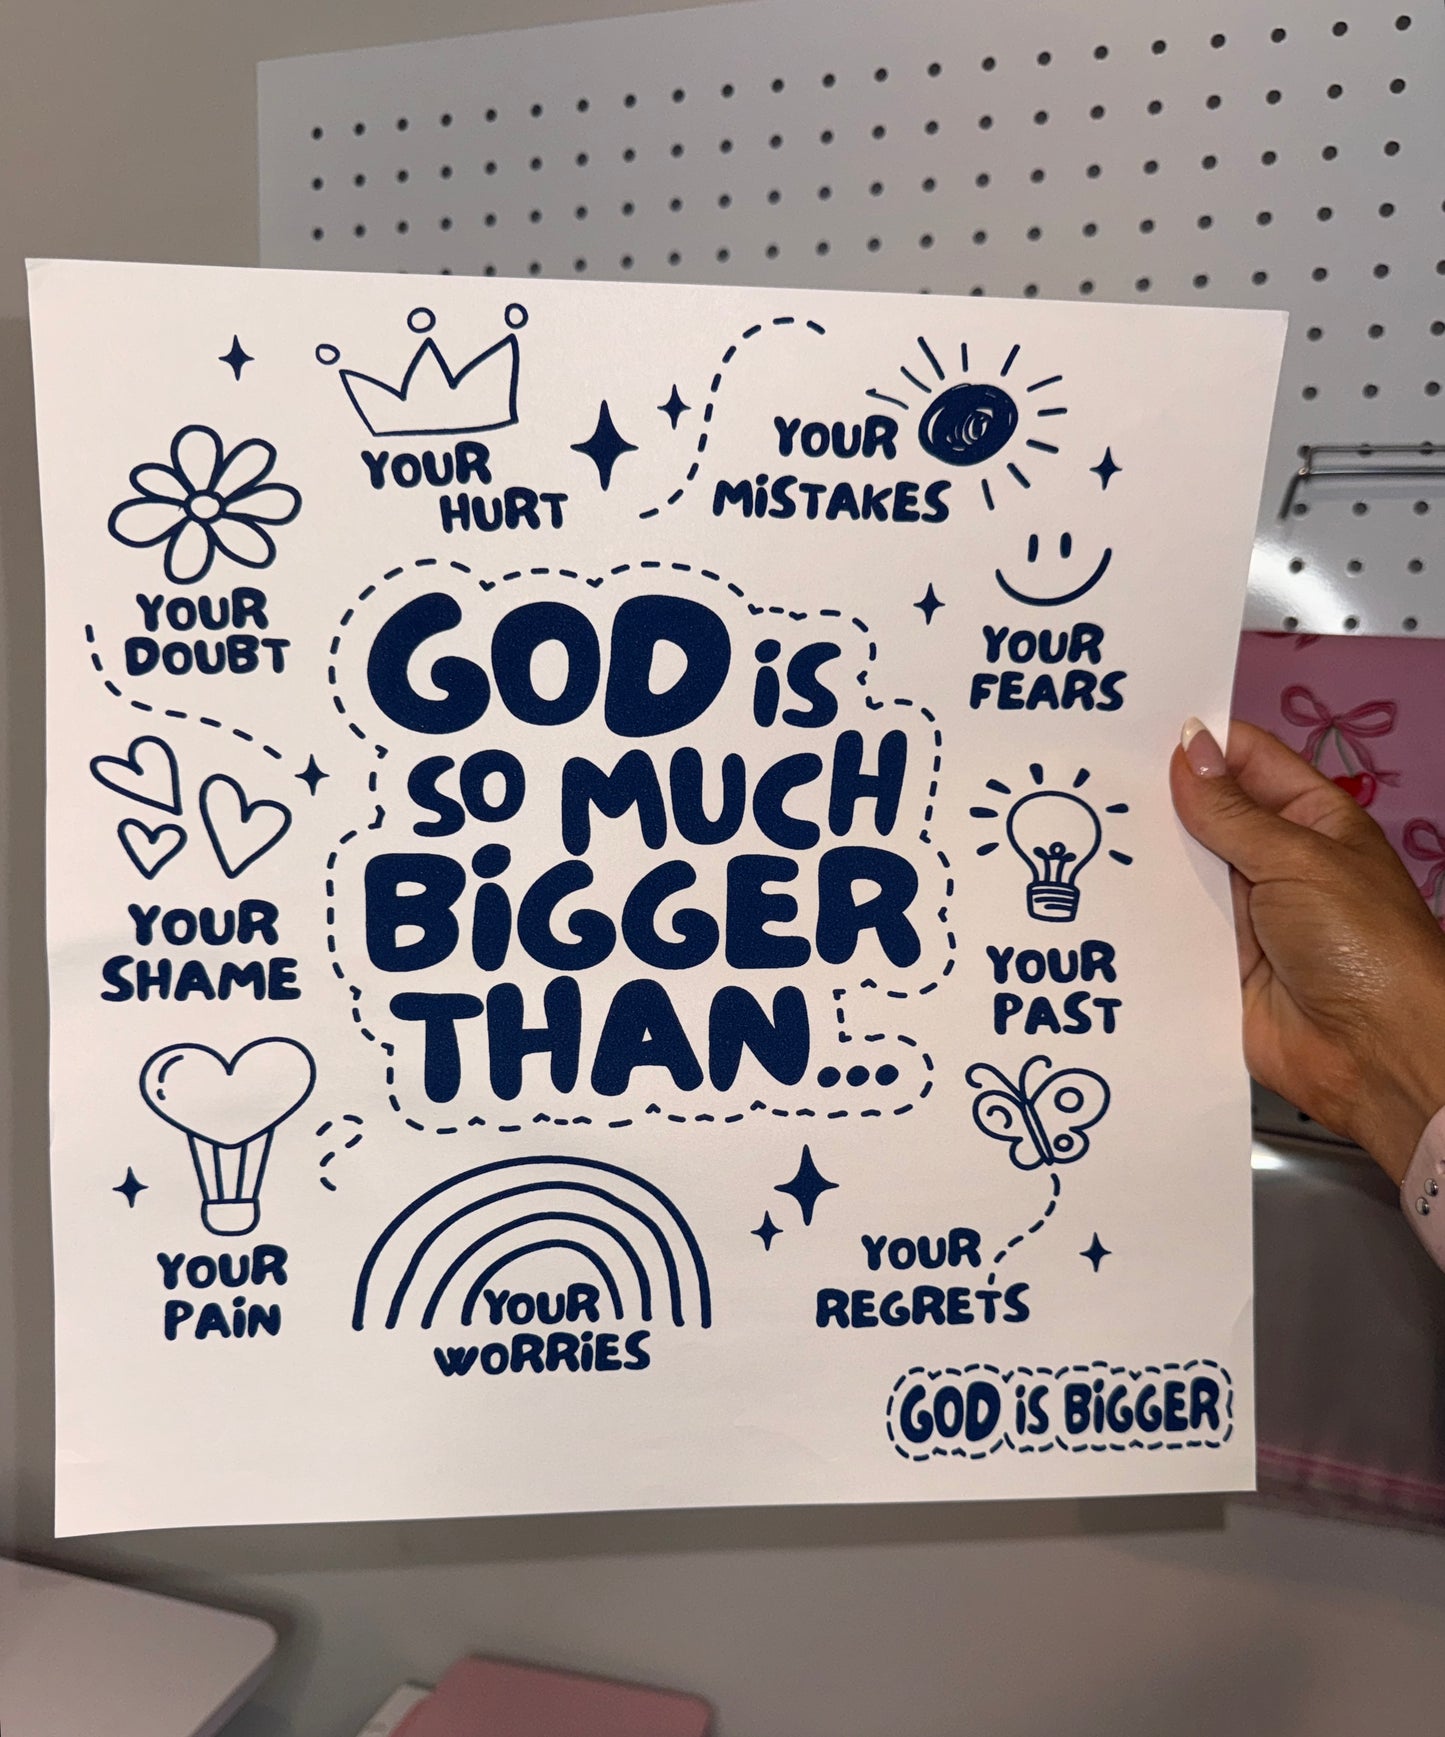 GOD iS
SO MUCH
BiGGER
THAN...
YOUR
HURT
YOUR
MiSTAKES
YOUR
DOUBT
YOUR
FEARS
YOUR
SHAME
YOUR
PAST
YOUR
PAiN
YOUR
WORRiES
YOUR
REGRETS
GOD iS BiGGER